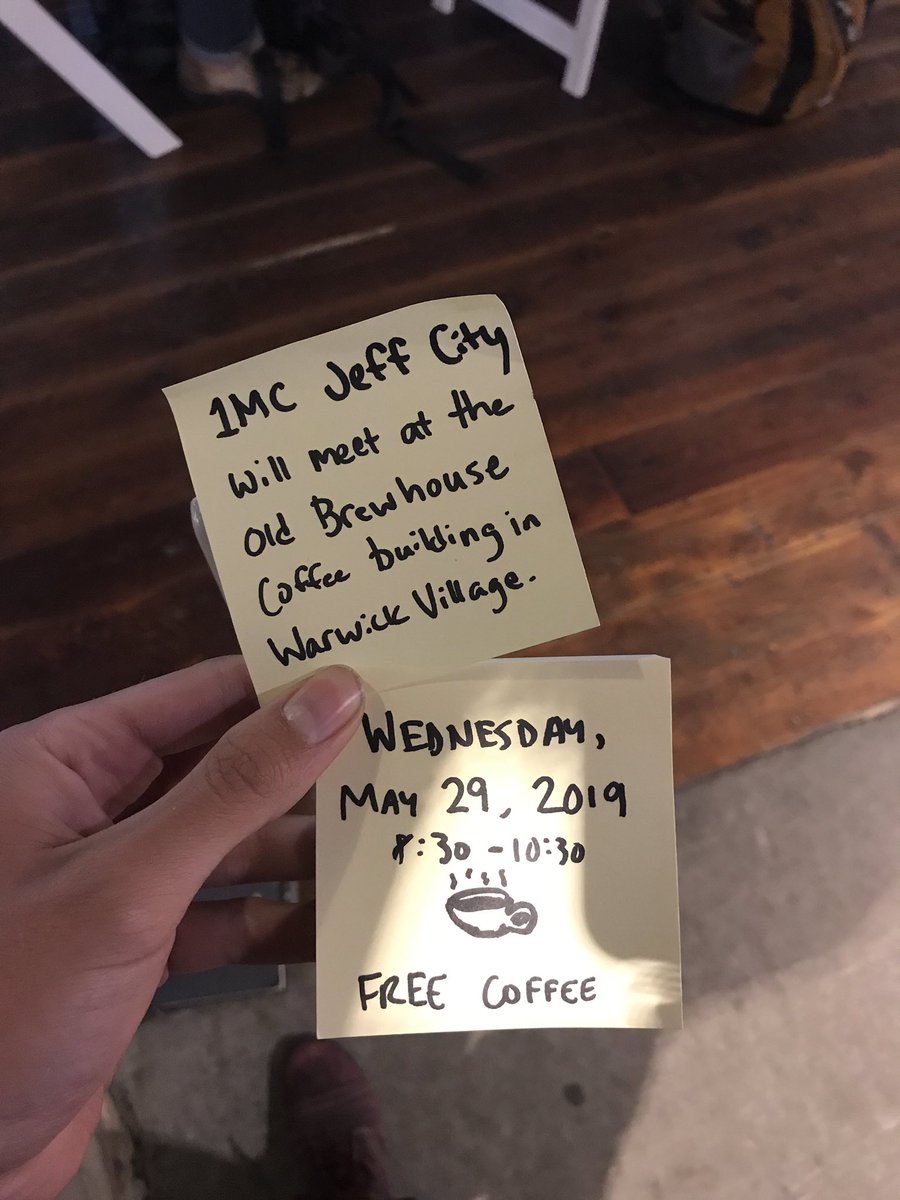 1MC Jeff City
will meet at the
old Brewhouse
Coffee building in
Warwick Village.
WEDNESDAY,
MAY 29, 2019
8:30 - 10:30
FREE COFFEE